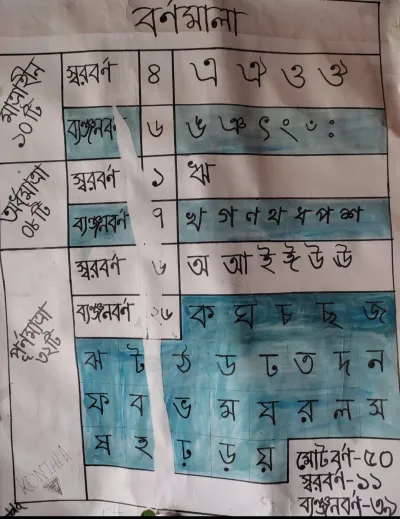 বর্ণমালা
মাত্রাহীন ১০ টি
স্বরবর্ণ ৪ এ ঐ ও ঔ
ব্যঞ্জনবর্ণ ৬ ঙ ঞ ৎ ং ঃ ঁ
অর্ধমাত্রা ০৮ টি
স্বরবর্ণ ১ ঋ
ব্যঞ্জনবর্ণ ৭ খ গ ণ থ ধ প শ
পূর্ণমাত্রা ৩২টি
স্বরবর্ণ ৬ অ আ ই ঈ উ ঊ
ব্যঞ্জনবর্ণ ২৬ ক ঘ চ ছ জ
ঝ ট ঠ ড ঢ ত দ ন
ফ ব ভ ম য র ল স
ষ হ ঢ় ড় য়
মোট বর্ণ-৫০
স্বরবর্ণ-১১
ব্যঞ্জনবর্ণ-৩৯